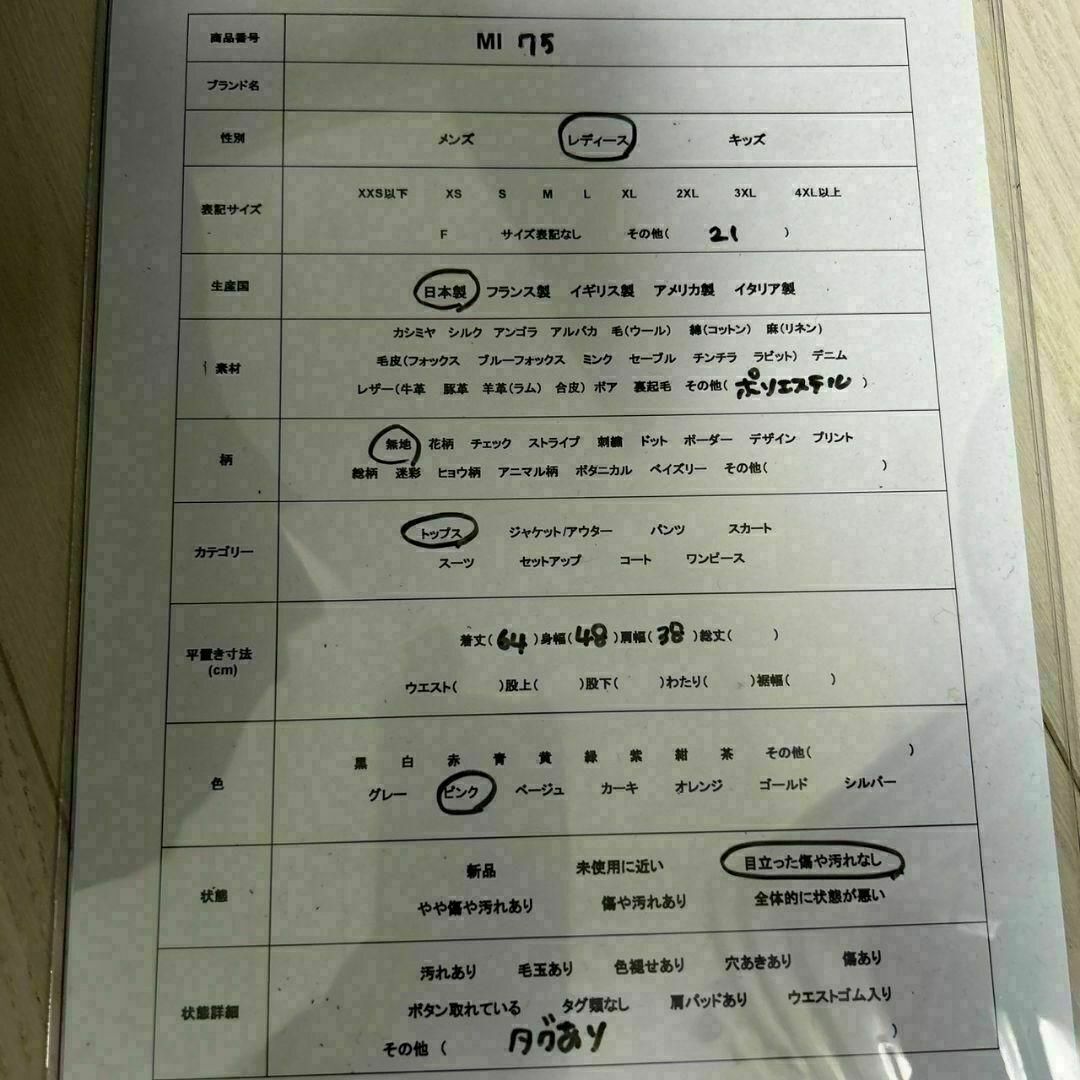 商品番号 MI 75
ブランド名
性別 メンズ レディース キッズ
表記サイズ
XXS以下 XS S M L XL 2XL 3XL 4XL以上
F サイズ表記なし その他( 21 )
生産国 日本製 フランス製 イギリス製 アメリカ製 イタリア製
素材
カシミヤ シルク アンゴラ アルパカ 毛(ウール) 綿(コットン) 麻(リネン)
毛皮(フォックス ブルーフォックス ミンク セーブル チンチラ ラビット) デニム
レザー(牛革 豚革 羊革(ラム) 合皮) ボア 裏起毛 その他( ポリエステル )
柄
無地 花柄 チェック ストライプ 刺繍 ドット ボーダー デザイン プリント
総柄 迷彩 ヒョウ柄 アニマル柄 ボタニカル ペイズリー その他( )
カテゴリー
トップス ジャケット/アウター パンツ スカート
スーツ セットアップ コート ワンピース
平置き寸法
(cm)
着丈( 64 )身幅( 48 )肩幅( 38 )総丈( )
ウエスト( )股上( )股下( )わたり( )裾幅( )
色
黒 白 赤 青 黄 緑 紫 紺 茶 その他( )
グレー ピンク ベージュ カーキ オレンジ ゴールド シルバー
状態
新品 未使用に近い 目立った傷や汚れなし
やや傷や汚れあり 傷や汚れあり 全体的に状態が悪い
状態詳細
汚れあり 毛玉あり 色褪せあり 穴あきあり 傷あり
ボタン取れている タグ類なし 肩パッドあり ウエストゴム入り
その他 ( タグあり )